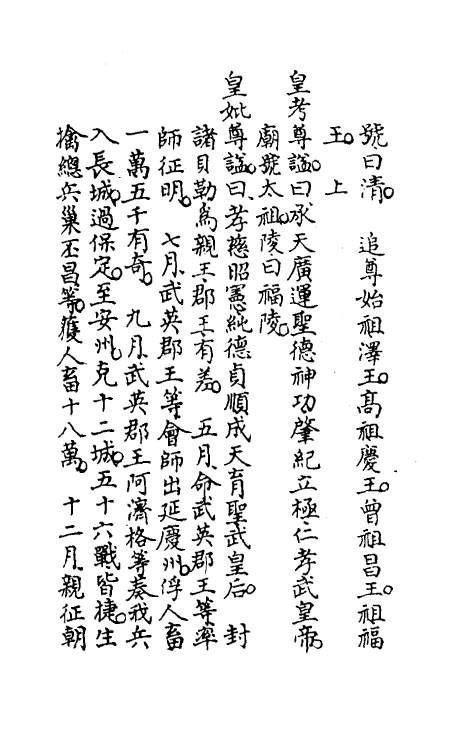 號曰清。　追尊始祖澤王。高祖慶王。曾祖昌王。祖福
王。上
皇考尊諡。曰承天廣運聖德神功肇紀立極仁孝武皇帝。
廟號太祖。陵曰福陵。
皇妣尊諡。曰孝慈昭憲純德貞順成天育聖武皇后。　封
諸貝勒為親王郡王有差。　五月。命武英郡王等率
師征明。　七月。武英郡王等會師出延慶州。俘人畜
一萬五千有奇。　九月。武英郡王阿濟格等奏我兵
入長城。過保定。至安州。克十二城。五十六戰皆捷。生
擒總兵巢丕昌等。獲人畜十八萬。　十二月。親征朝